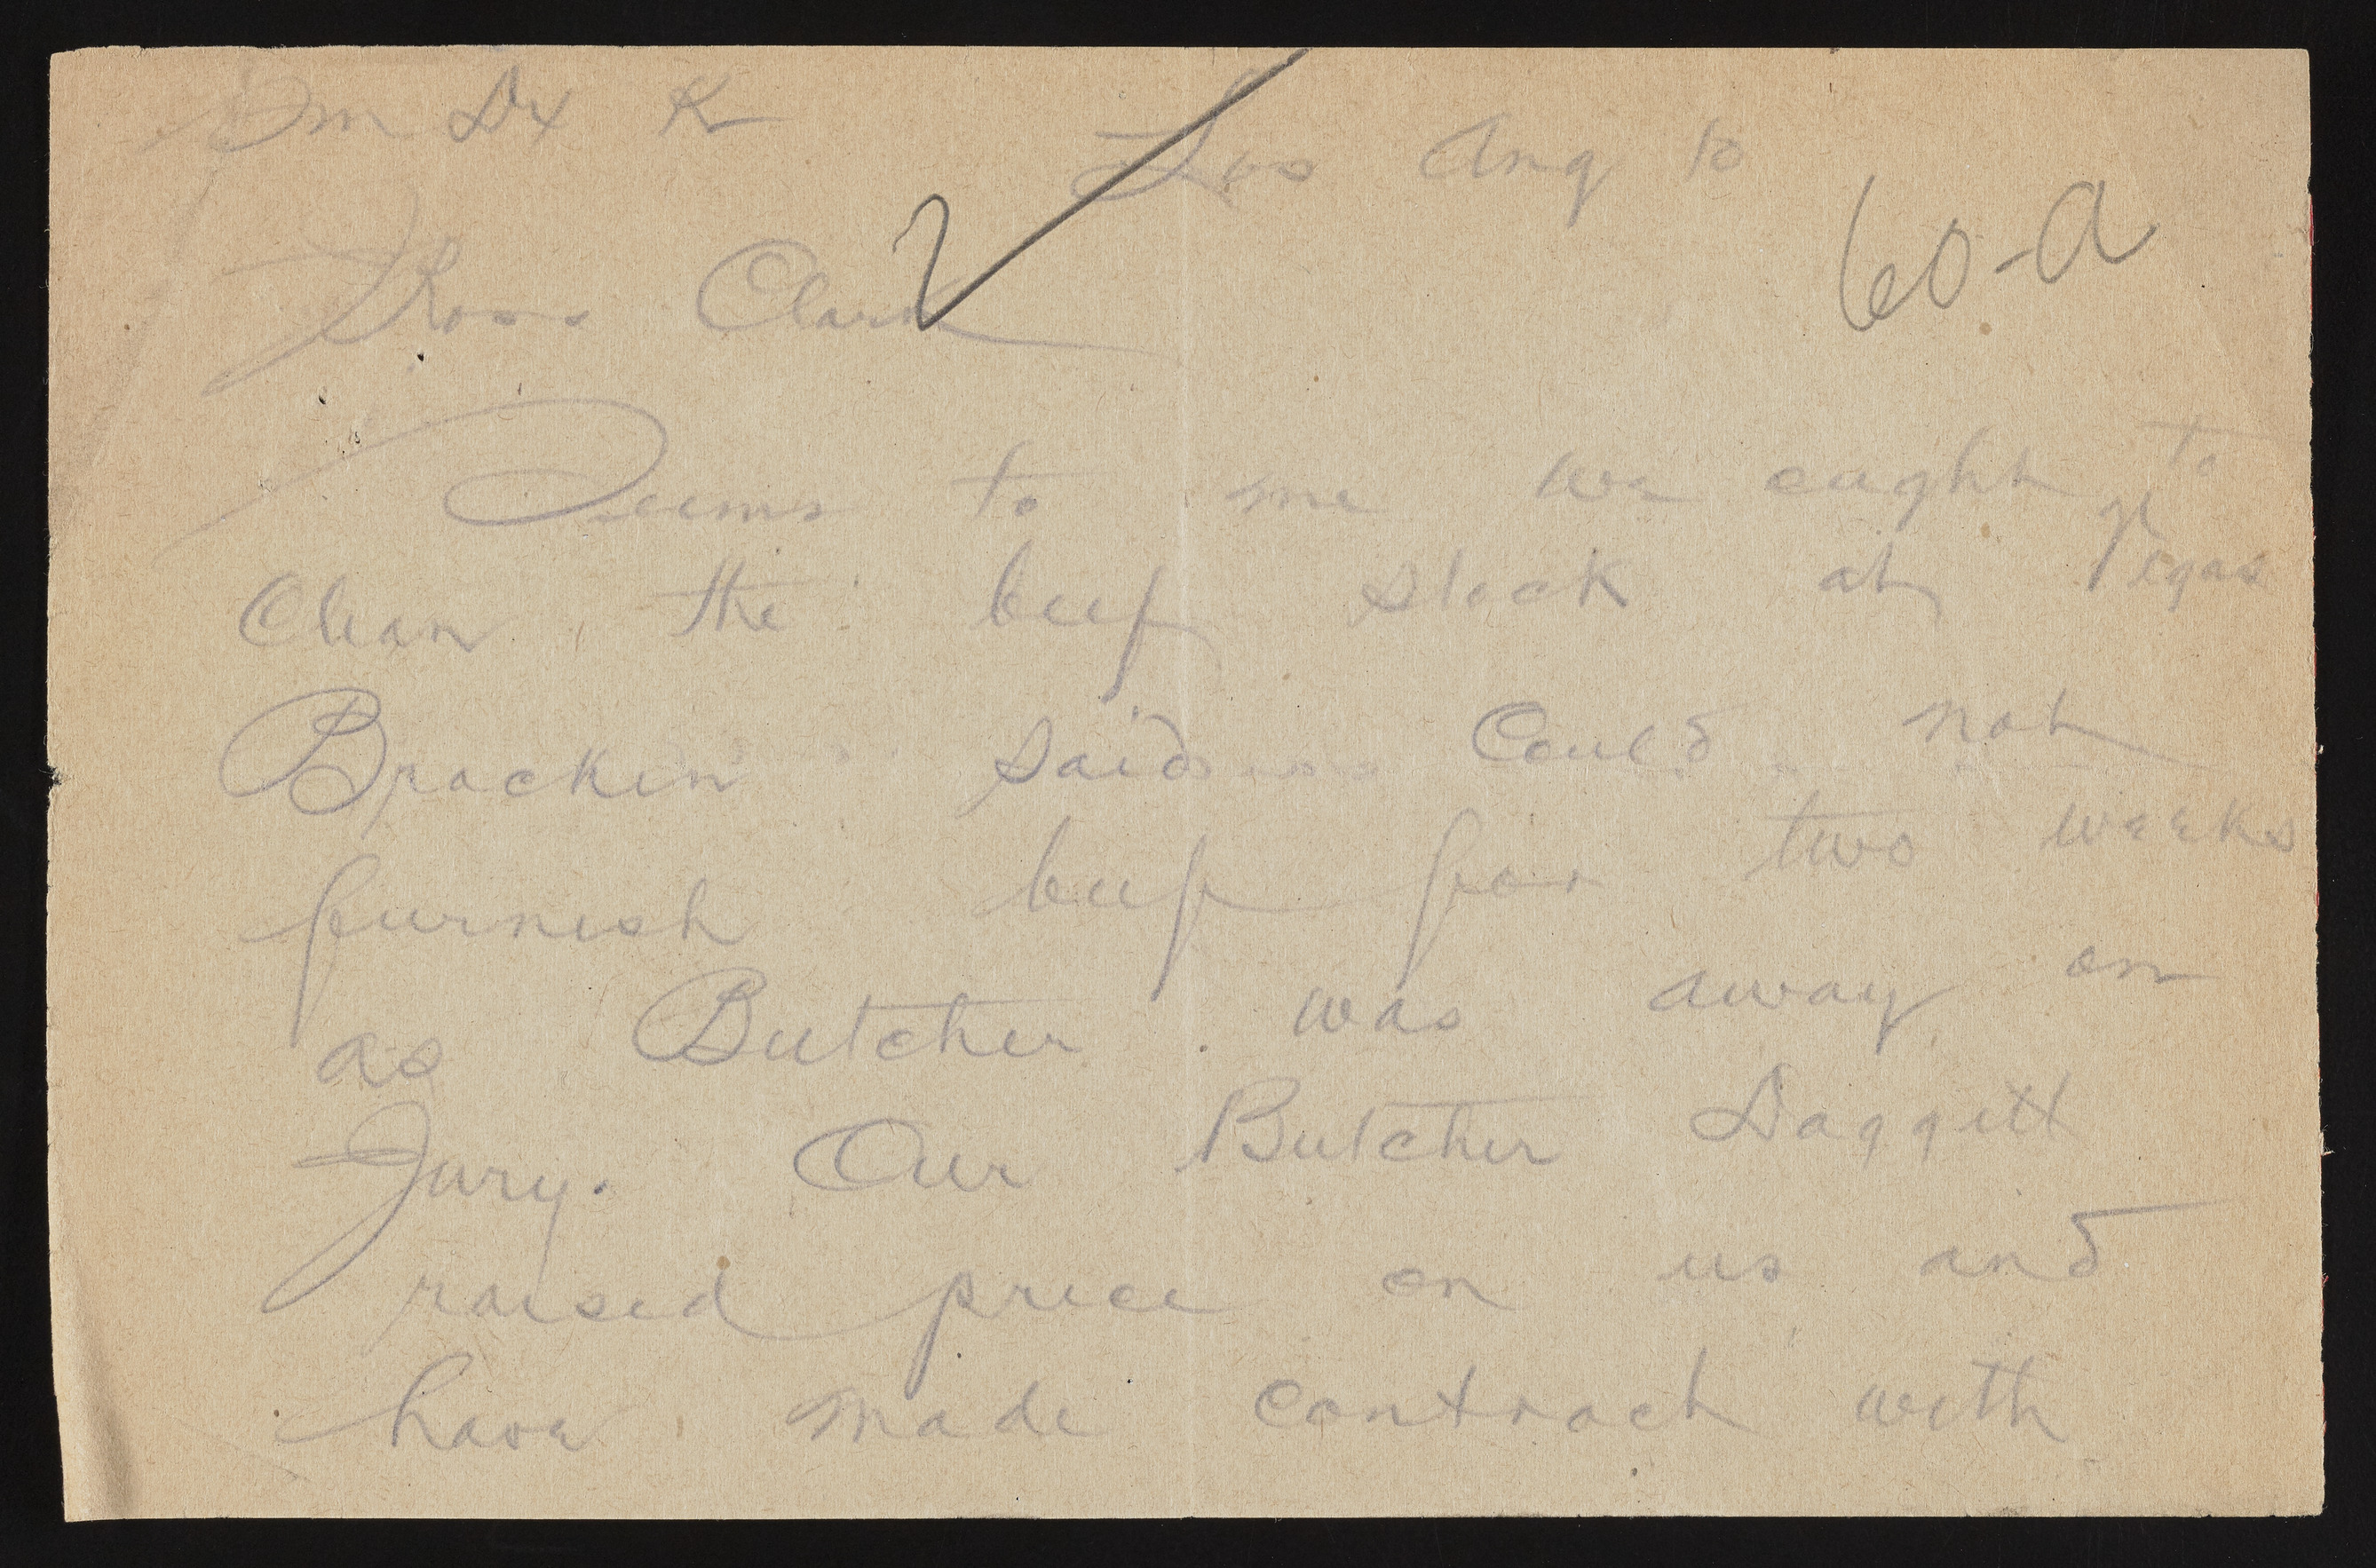 Dm Dx K
Los Ang 10
60-a
Ross Clark
2
Seems to me we ought to
Clean the beef stock at Vegas
Bracken said could not
furnish beef for two weeks
as Butcher was away on
Jury. Our Butcher Daggett
raised price on us and
have made contract with